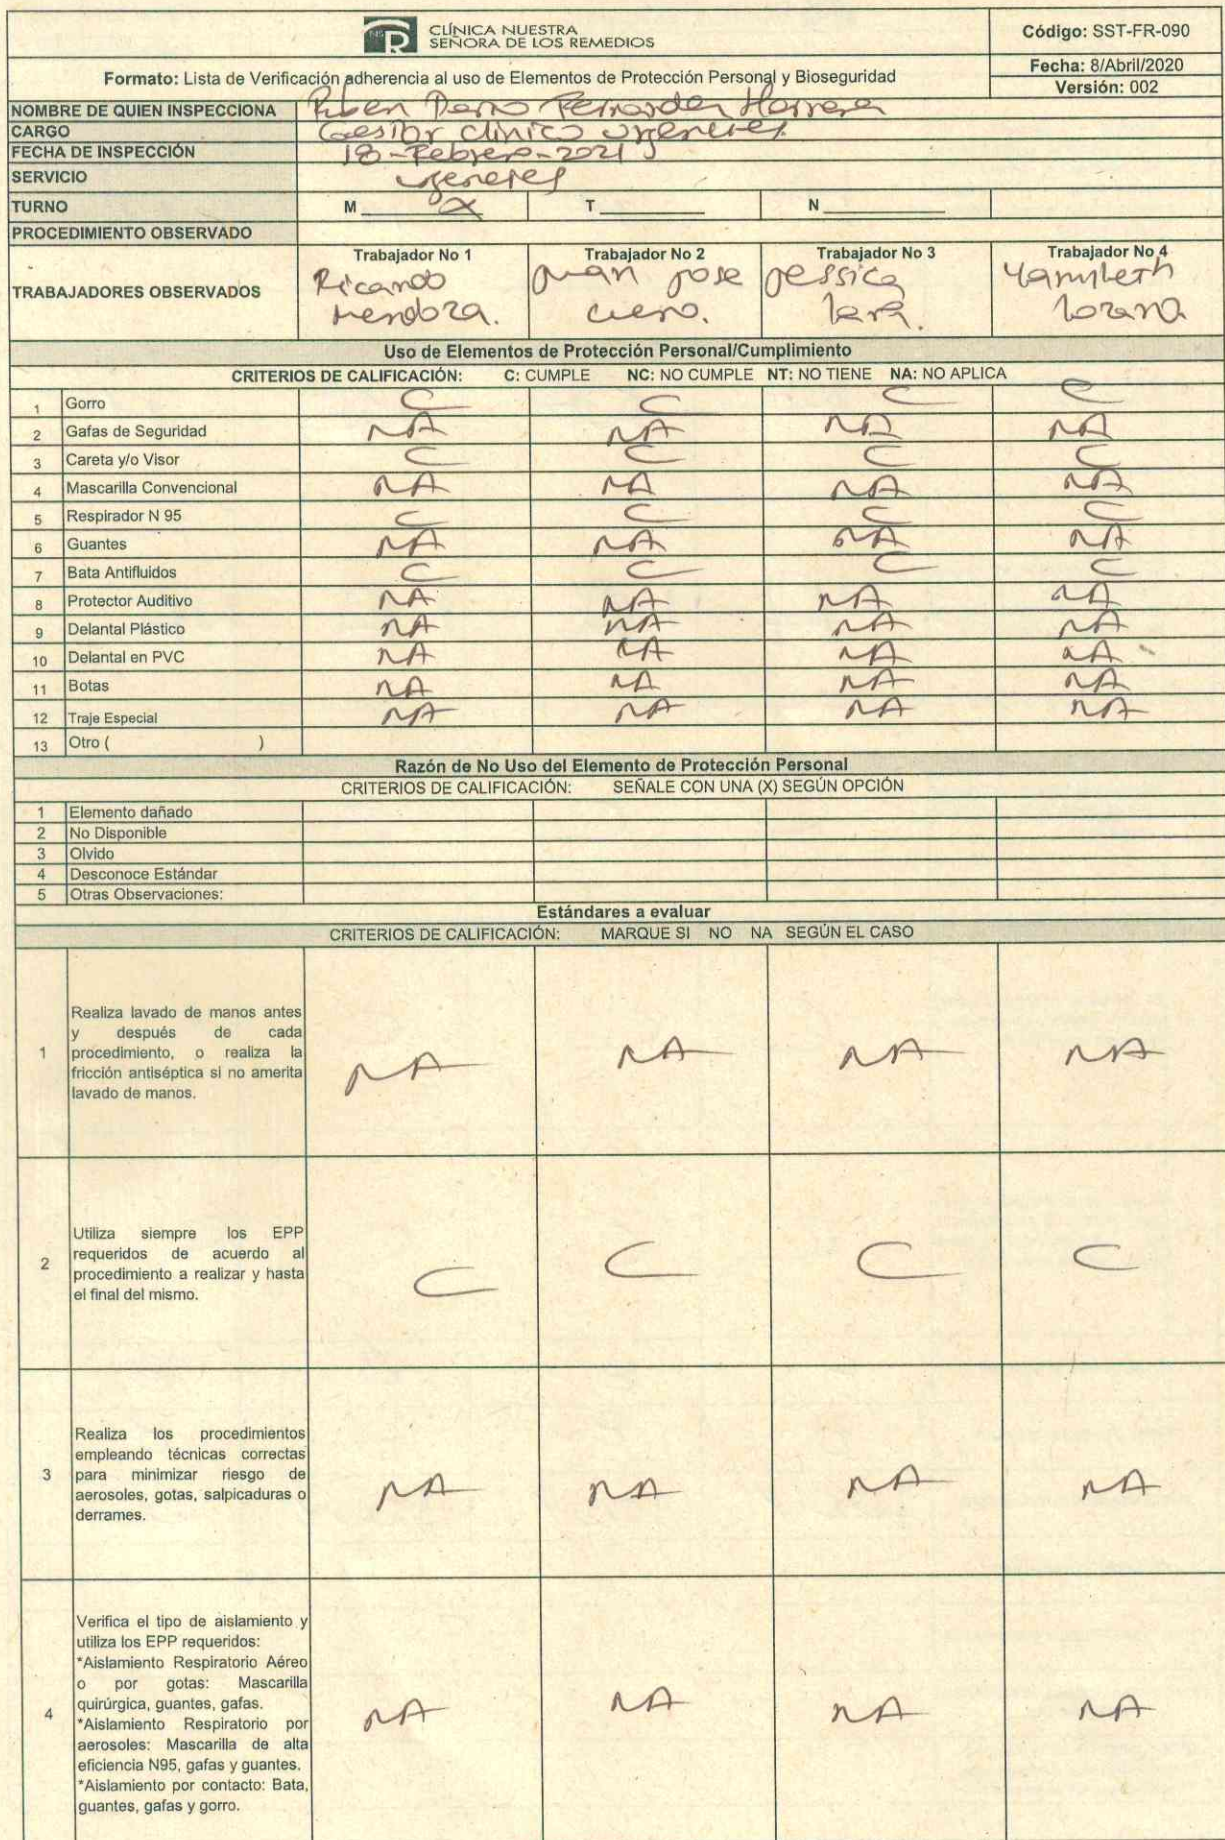 CLÍNICA NUESTRA
SEÑORA DE LOS REMEDIOS
Código: SST-FR-090
Formato: Lista de Verificación adherencia al uso de Elementos de Protección Personal y Bioseguridad
Fecha: 8/Abril/2020
Versión: 002
NOMBRE DE QUIEN INSPECCIONA Ruben Dario Fernandez Herrera
CARGO Gestor clinico urgencias
FECHA DE INSPECCIÓN 18-Febrero-2021
SERVICIO urgencias
TURNO M X T N
PROCEDIMIENTO OBSERVADO
TRABAJADORES OBSERVADOS
Trabajador No 1 Trabajador No 2 Trabajador No 3 Trabajador No 4
Ricardo Juan Jose Jessica Yamileth
Mendoza. Cuero. lara. Lozano
Uso de Elementos de Protección Personal/Cumplimiento
CRITERIOS DE CALIFICACIÓN: C: CUMPLE NC: NO CUMPLE NT: NO TIENE NA: NO APLICA
1 Gorro C C C C
2 Gafas de Seguridad NA NA NA NA
3 Careta y/o Visor C C C C
4 Mascarilla Convencional NA NA NA NA
5 Respirador N 95 C C C C
6 Guantes NA NA NA NA
7 Bata Antifluidos C C C C
8 Protector Auditivo NA NA NA NA
9 Delantal Plástico NA NA NA NA
10 Delantal en PVC NA NA NA NA
11 Botas NA NA NA NA
12 Traje Especial NA NA NA NA
13 Otro ( )
Razón de No Uso del Elemento de Protección Personal
CRITERIOS DE CALIFICACIÓN: SEÑALE CON UNA (X) SEGÚN OPCIÓN
1 Elemento dañado
2 No Disponible
3 Olvido
4 Desconoce Estándar
5 Otras Observaciones:
Estándares a evaluar
CRITERIOS DE CALIFICACIÓN: MARQUE SI NO NA SEGÚN EL CASO
1
Realiza lavado de manos antes
y después de cada
procedimiento, o realiza la
fricción antiséptica si no amerita
lavado de manos.
NA NA NA NA
2
Utiliza siempre los EPP
requeridos de acuerdo al
procedimiento a realizar y hasta
el final del mismo.
C C C C
3
Realiza los procedimientos
empleando técnicas correctas
para minimizar riesgo de
aerosoles, gotas, salpicaduras o
derrames.
NA NA NA NA
4
Verifica el tipo de aislamiento y
utiliza los EPP requeridos:
*Aislamiento Respiratorio Aéreo
o por gotas: Mascarilla
quirúrgica, guantes, gafas.
*Aislamiento Respiratorio por
aerosoles: Mascarilla de alta
eficiencia N95, gafas y guantes.
*Aislamiento por contacto: Bata,
guantes, gafas y gorro.
NA NA NA NA